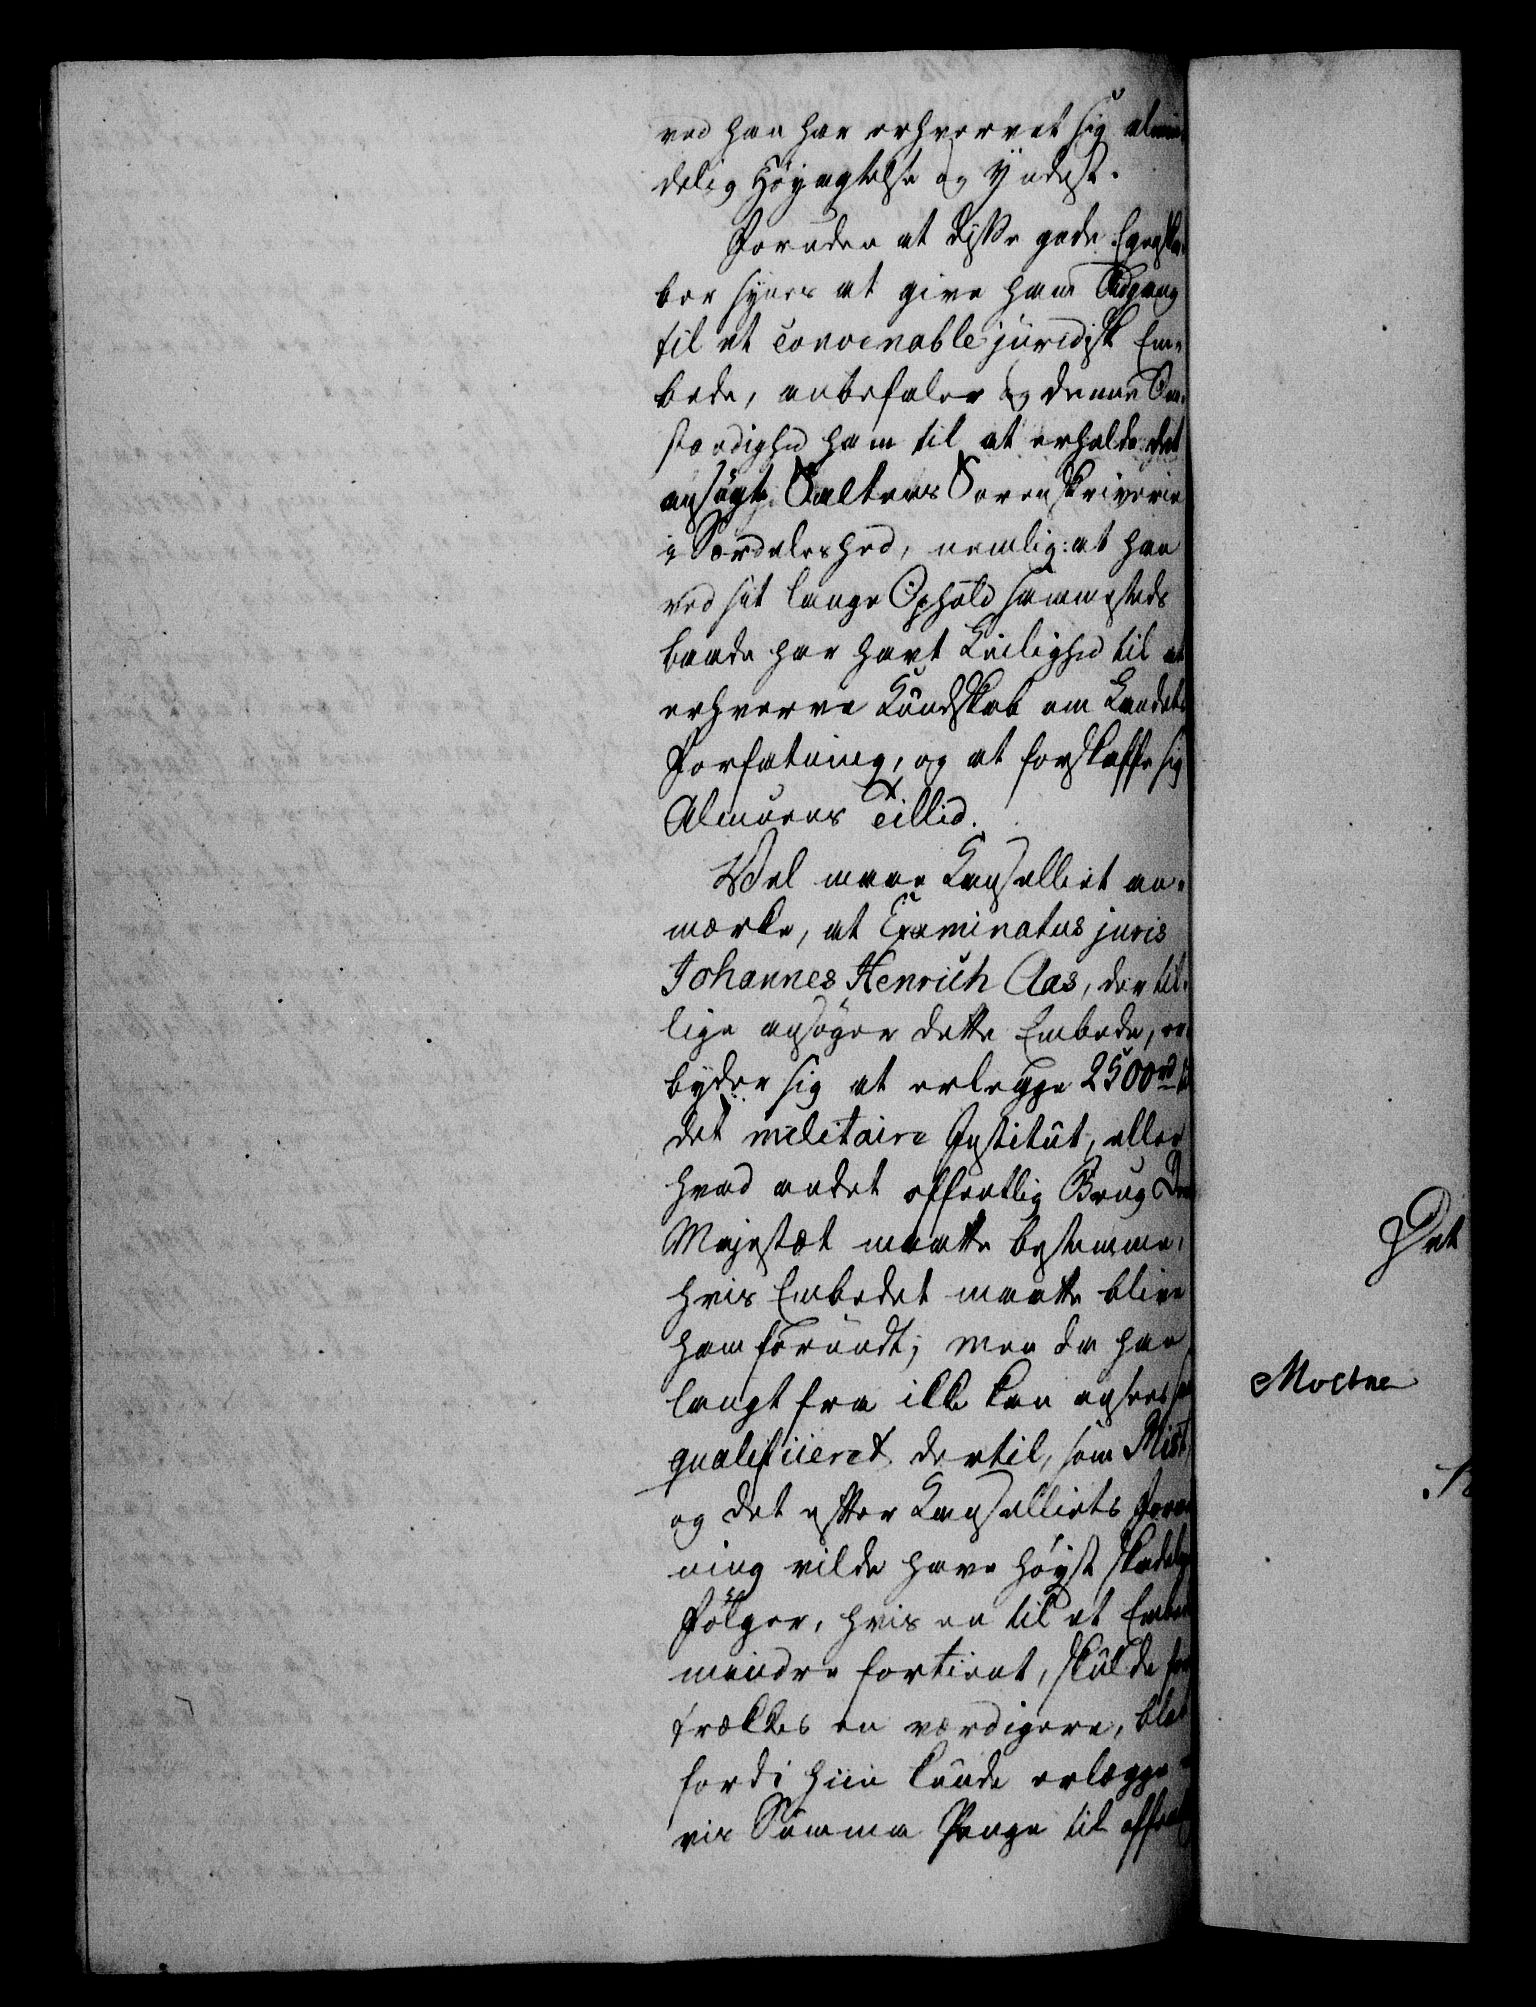 ved han har erhvervet sig almin-
delig Höyagtelse og Yndest.
Foruden at disse gode Egenska-
ber synes at give ham Adgang
til et convenable juridisk Em-
bede, anbefaler og denne Om-
stændighed ham til at erholde det
ansögte Saltens Sorenskriverie
i Særdeleshed, nemlig: at han
ved sit lange Ophold sammesteds
baade har havt Leilighed til at
erhverve Kundskab om Landets
Forfatning, og at forskaffe sig
Almuens Tillid.
Vel maae Cancelliet an-
mærke, at Examinatus juris
Johannes Henrich Aas, der til-
lige ansöger dette Embede, er-
byder sig at erlegge 2500 rd
det militaire Institut, eller
hvad andet offentlig Brug
Majestæt maatte bestemme,
hvis Embedet maatte blive
ham forundt; men da han
langt fra ikke kan ansees
qualificeret dertil, som Mist,
og det efter Cancelliets
ning vilde have höyst
Fölger, hvis en til et
mindre fortient, skulde
trækkes en værdigere, blot
fordi hiin kunde erlægge
vis Summa Penge til
Det
Moestue